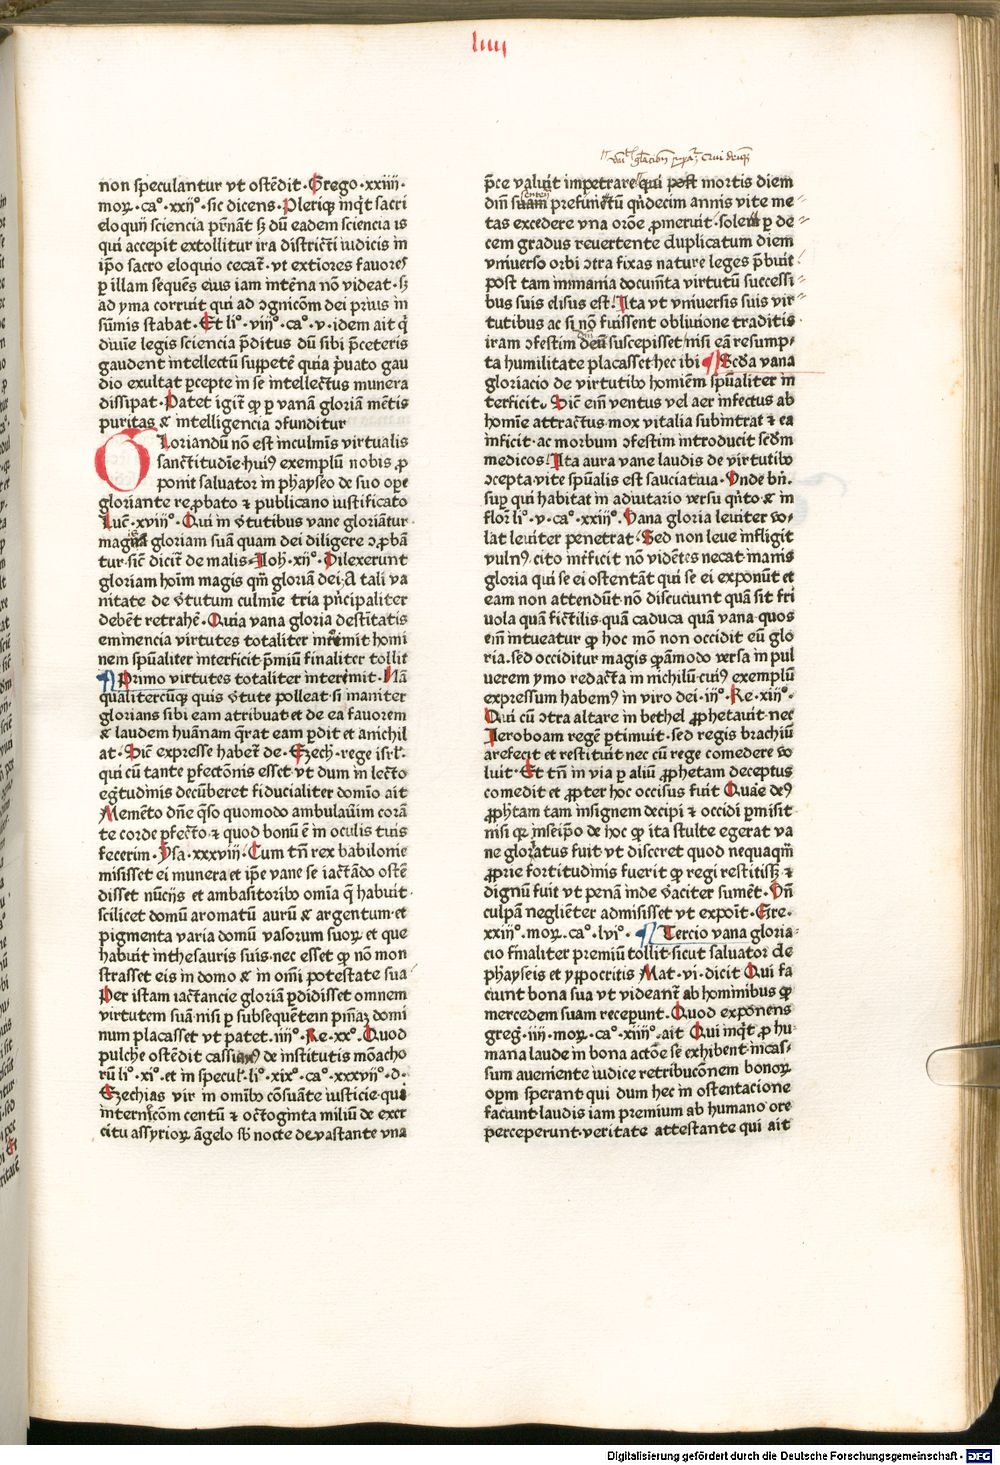 liiii
non speculantur vt ostēdit. Grego. xxiiii.
moꝝ. ca°. xxii°. sic dicens. Pleriqꝫ inq̄t sacri
eloquii sciencia p̄rnāt sꝫ dū eadem sciencia is
qui accepit extollitur ira districti iudicis in
ip̄o sacro eloquio cecat̄. vt extiores fauores
ꝑ illam sequēs eius iam intēna nō videat. sꝫ
ad yma corruit qui ad ꝯgnicōm dei prius in
sūmis stabat. Et li°. viii°. ca°. v. idem ait q̄
diuīe legis sciencia p̄ditus dū sibi p̄ceteris
gaudent intellectū suppetē quia p̄uato gau
dio exultat ꝑcepte in se intellectus munera
dissipat. Patet igit̄ ꝙ ꝑ vanā gloriā mētis
puritas & intelligencia ꝯfunditur
Gloriandū nō est in culmīs virtualis
sanctitudīe huiꝰ exemplū nobis ꝓ
ponit saluator in phayseo de suo oꝑe
gloriante reꝓbato ⁊ publicano iustificato
Luē. xviii°. Qui in v̄tutibus vane gloriātur
magnā gloriam suā quam dei diligere ꝯꝓbā
tur. sic̄ dicit̄ de malis. Ioh̄. xii°. Dilexerunt
gloriam hoīm magis qm̄ gloriā dei. A tali va
nitate de v̄tutum culmīe tria p̄ncipaliter
debēt retrahē. Quia vana gloria destītatis
eminencia virtutes totaliter interemit homi
nem sp̄ualiter interficit p̄miū finaliter tollit
¶ Primo virtutes totaliter interimit. Nā
qualitercūqꝫ quis v̄tute polleat si inaniter
glorians sibi eam atribuat et de ea fauorem
& laudem huānam q̄rat eam ꝑdit et anichil
at. Sic̄ expresse habet̄ de. Ezech. rege isrl̄.
qui cū tante ꝑfectōnis esset vt dum in lecto
eg̓tudinis decūberet fiducialiter domīo ait
Memēto dn̄e q̄so quomodo ambulauīm corā
te corde ꝑfecto ⁊ quod bonū ē in oculis tuis
fecerim. Ysa. xxxviii. Cum tn̄ rex babilonie
misisset ei munera et ip̄e vane se iactādo ostē
disset nūcijs et ambasitoribꝰ omīa q̄ habuit
scilicet domū aromatū aurū & argentum. et
pigmenta varia domū vasorum suoꝝ et que
habuit in thesauris suis. nec esset ꝙ nō mon
strasset eis in domo & in om̄i potestate sua
Per istam iactancie gloriā ꝑdidisset omnem
virtutem suā nisi ꝑ subsequētein pīnāꝫ domi
num placasset vt patet. iiii°. Re. xx°. Quod
pulch̄e ostēdit cassianꝰ de institutis mōacho
rū li°. xi°. et in specul̄. li°. xix°. ca°. xxxvii°. d.
Ezechias vir in omibꝰ cōsuāte iusticie. qui
internicōm centū & octoginta miliū de exer
citu assyrioꝝ āgelo sb̄ nocte deuastante vna
p̄ce valuit impetrare qui post mortis diem
dīn suam prefunctū qn̄decim annis vite me
tas excedere vna orōe ꝓmeruit. solem ꝑ de
cem gradus reuertente duplicatum diem
vniuerso orbi ꝯtra fixas nature leges p̄buit.
post tam inmania documta virtutū successi
bus suis elisus est. Ita vt vniuersis suis vir
tutibus ac si nō fuissent obliuione traditis
iram ꝯfestim deū suscepisset nisi eā resump
ta humilitate placasset hec ibi ¶ Scd̄a vana
gloriacio de virtutibꝰ homīem sp̄ualiter in
terficit. Sic̄ em̄ ventus vel aer infectus ab
homīe attractus mox vitalia subintrat & ea
inficit. ac morbum ꝯfestim introducit scd̄m
medicos. Ita aura vane laudis de virtutibꝰ
ꝯcepta vite sp̄ualis est sauciatiua. Vnde bn̄.
suꝑ qui habitat in adiutorio versu qn̄to & in
flor̄. li°. v. ca°. xxiii°. Vana gloria leuiter vo
lat leuiter penetrat. Sed non leue infligit
vulnꝰ. cito interficit nō vidētes necat inanis
gloria qui se ei ostentāt qui se ei exponūt et
eam non attendūt. nō discuciunt quā sit fri
uola quā fictilis. quā caduca quā vana. quos
em̄ intueatur ꝙ hoc mō non occidit eū glo
ria. sed occiditur magis quāmodo versa in pul
uerem ymo redacta in nichilū. cuiꝰ exemplū
expressum habemꝰ in viro dei. iii°. Re. xiii°.
Qui cū ꝯtra altare in bethel ꝓphetauit. nec
Ieroboam regē ꝑtimuit. sed regis brachiū
arefecit et restituit nec cū rege comedere vo
luit. Et tn̄ in via ꝑ aliū ꝓphetam deceptus
comedit et ꝓpter hoc occisus fuit. Quare deꝰ
ꝓph̄tam tam insignem decipi & occidi ꝑmisit
nisi qꝛ in seip̄o de hoc ꝙ ita stulte egerat va
ne gloriatus fuit vt disceret quod nequaqm̄
ꝓprie fortitudinis fuerit ꝙ regi restitissꝫ ⁊
dignū fuit vt penā inde v̄aciter sumēt. Vn̄
culpā negliēter admisisset vt expoīt. Gre.
xxiii°. moꝝ. ca°. lvi°. ¶ Tercio vana gloria
cio finaliter premiū tollit. sicut saluator de
phayseis et yppocritis Mat. vi. dicit Qui fa
ciunt bona sua vt videant̄ ab hominibus ꝙ
mercedem suam recepunt. Quod exponens
greg. iiii. moꝝ. ca°. xiiii°. ait Qui inq̄t ꝓ hu
mana laude in bona actōe se exhibent incas
sum aueniente iudice retribucōnem bonoꝝ
oꝑm sperant qui dum hec in ostentacione
faciunt. laudis iam premium ab humano ore
perceperunt. veritate attestante qui ait
Digitalisierung gefördert durch die Deutsche Forschungsgemeinschaft - DFG